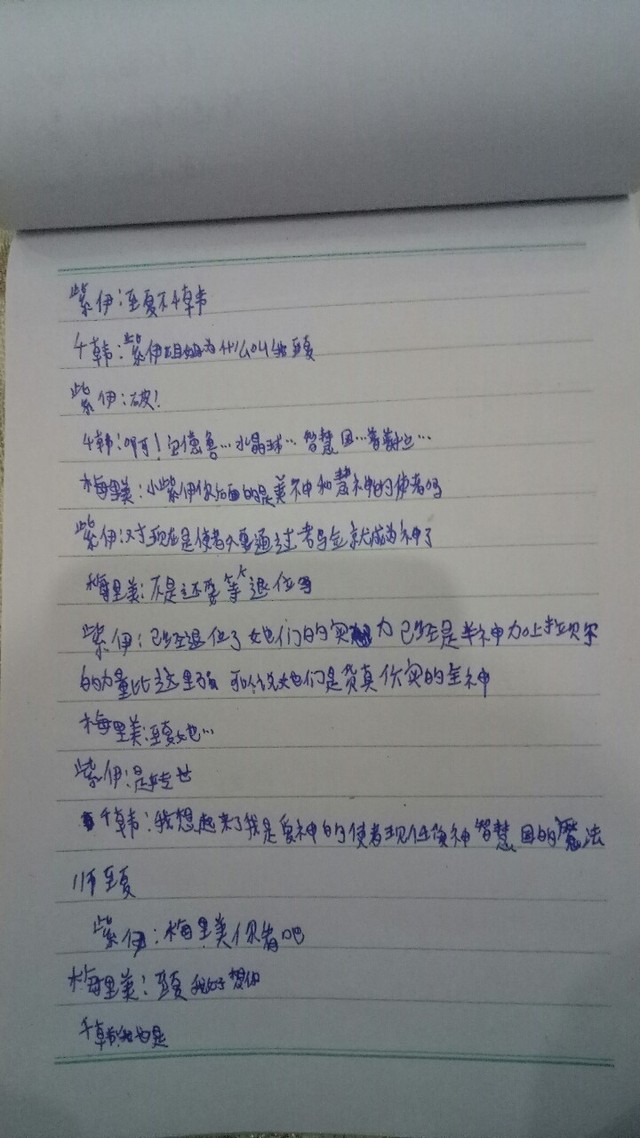 紫伊:至夏不千韩
千韩:紫伊姐姐为什么叫我至夏
紫伊:破!
千韩:啊!宝德鲁…水晶球…智慧国…
梅里美:小紫伊你后面的是美神和慧神的使者吗
紫伊:对了现在是使者只要通过考验就成为神了
梅里美:不是还要等人退位吗
紫伊:已经退位了她们的实力已经是半神加上拉贝尔
的力量比这里强可以说她们是货真价实的全神
梅里美:至夏她…
紫伊:是转世
千韩:我想起来了我是夏神的使者现任夏神智慧国的魔法
师至夏
紫伊:梅里美你看吧
梅里美:至夏我好想你
千韩:我也是